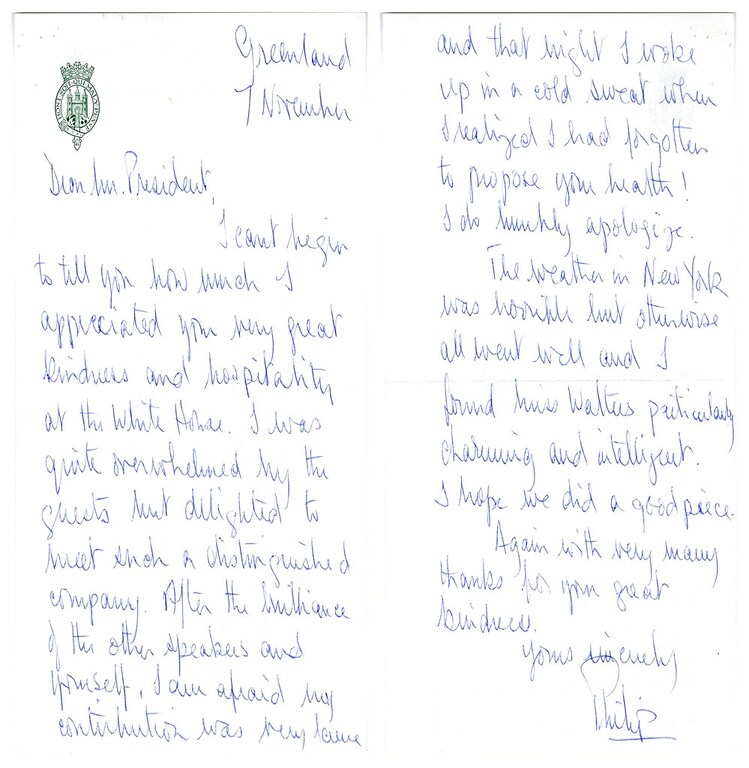 HONI SOIT QUI MAL Y PENSE
Greenland
7 November
Dear Mr. President,
I can't begin
to tell you how much I
appreciated your very great
kindness and hospitality
at the White House. I was
quite overwhelmed by the
guests but delighted to
meet such a distinguished
company. After the brilliance
of the other speakers and
yourself, I am afraid my
contribution was very lame
and that night I woke
up in a cold sweat when
I realized I had forgotten
to propose your health!
I do humbly apologize.
The weather in New York
was horrible but otherwise
all went well and I
found Miss Walters particularly
charming and intelligent.
I hope we did a good piece.
Again with very many
thanks for your great
kindness.
Yours sincerely
Philip